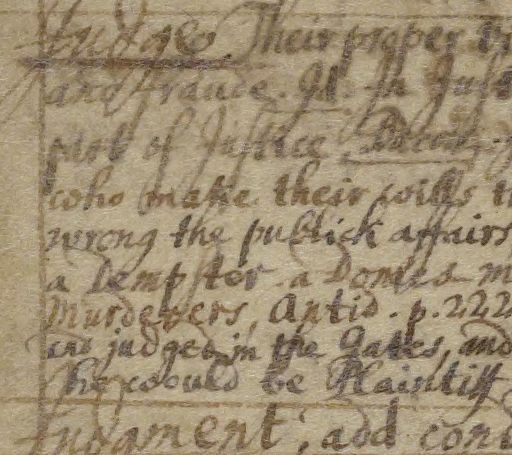 Judge. Their proper
and fraude. Id. In Just
part of Justice
who make their wills
wrong the publick affairs
a Dempster. a Domes
Murderers, Antid. p. 222
are judged in the Gates, and
he would be Plaintiff
Judgment, add